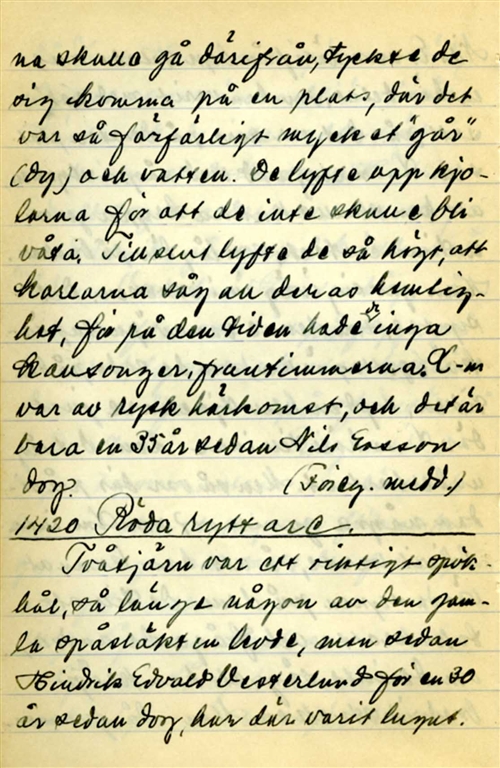 na skulla gå därifrån, tyckte de
sig komma på en plats, där det
var så förfärligt mycket "går"
(dy) och vatten. De lyfte opp kjo-
larna för att de inte skulle bli
våta. Till slut lyfte de så högt, att
karlarna såg all deras hemlig-
het, för på den tiden hade di inga
kalsonger, fruntimmerna. L-n
var av rysk härkomst, och det är
bara en 35 år sedan Nils Ersson
dog. (Föreg. medd.)
1420 Röda ryttare.
Tvåtjärn var ett riktigt spök-
hål, så länge någon av den gam-
la spåsläkten levde, men sedan
Hindriks Edvald Vesterlund för en 30
år sedan dog, har där varit lugnt.